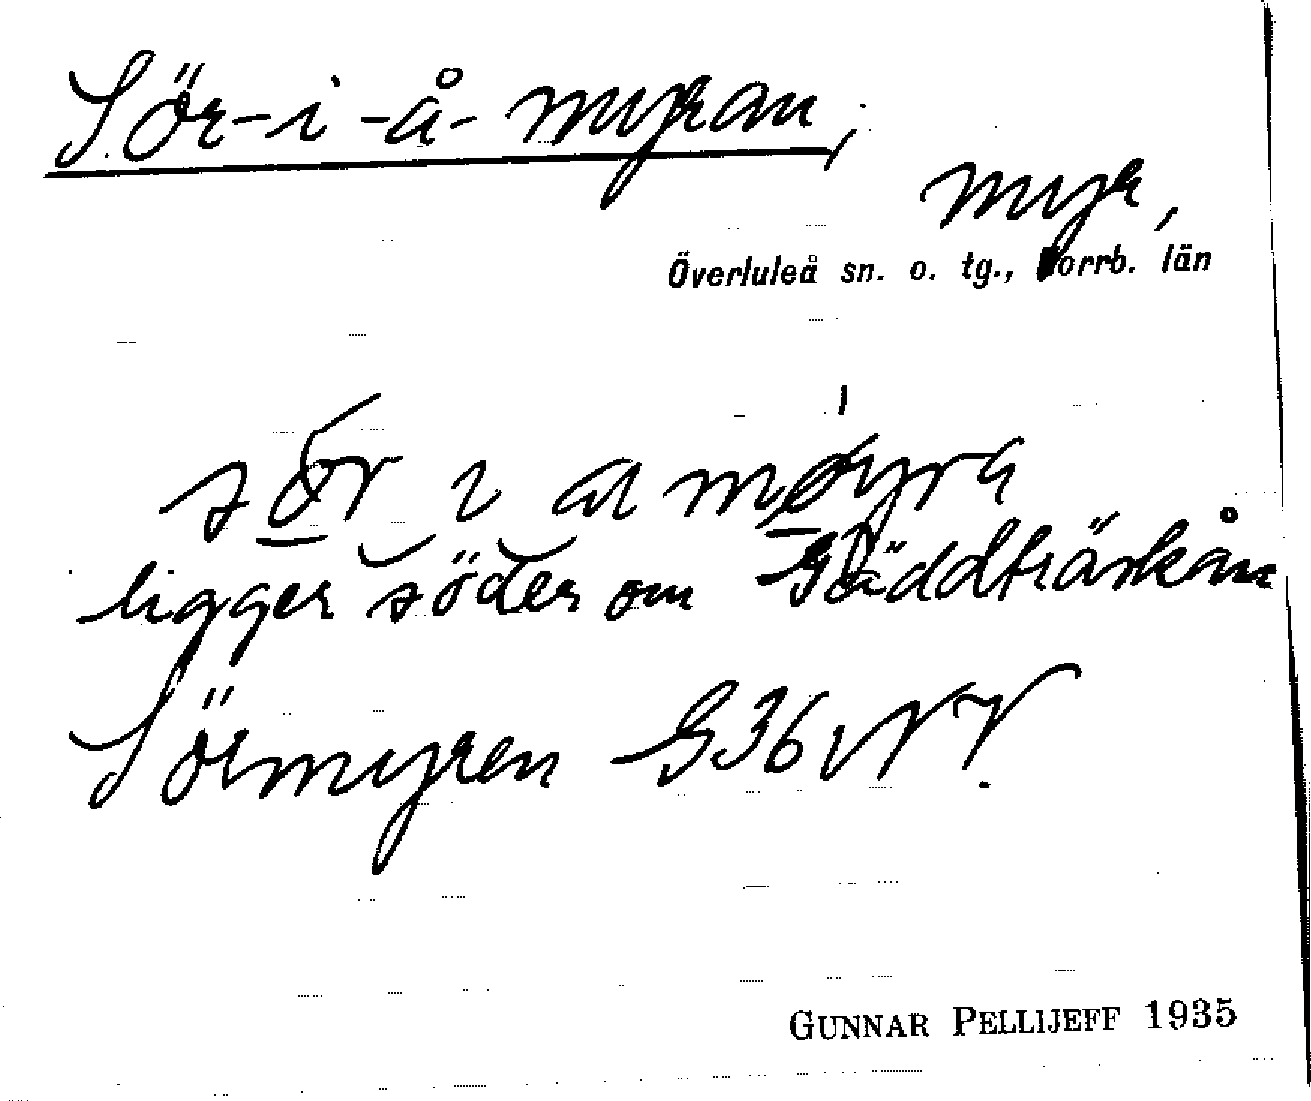 Sör-i-å-myran,
myr,
Överluleå sn. o. tg., Norrb. län
sör i a møyra
ligger söder om Gäddträskån
Sörmyren G36 NV.
GUNNAR PELLIJEFF 1935